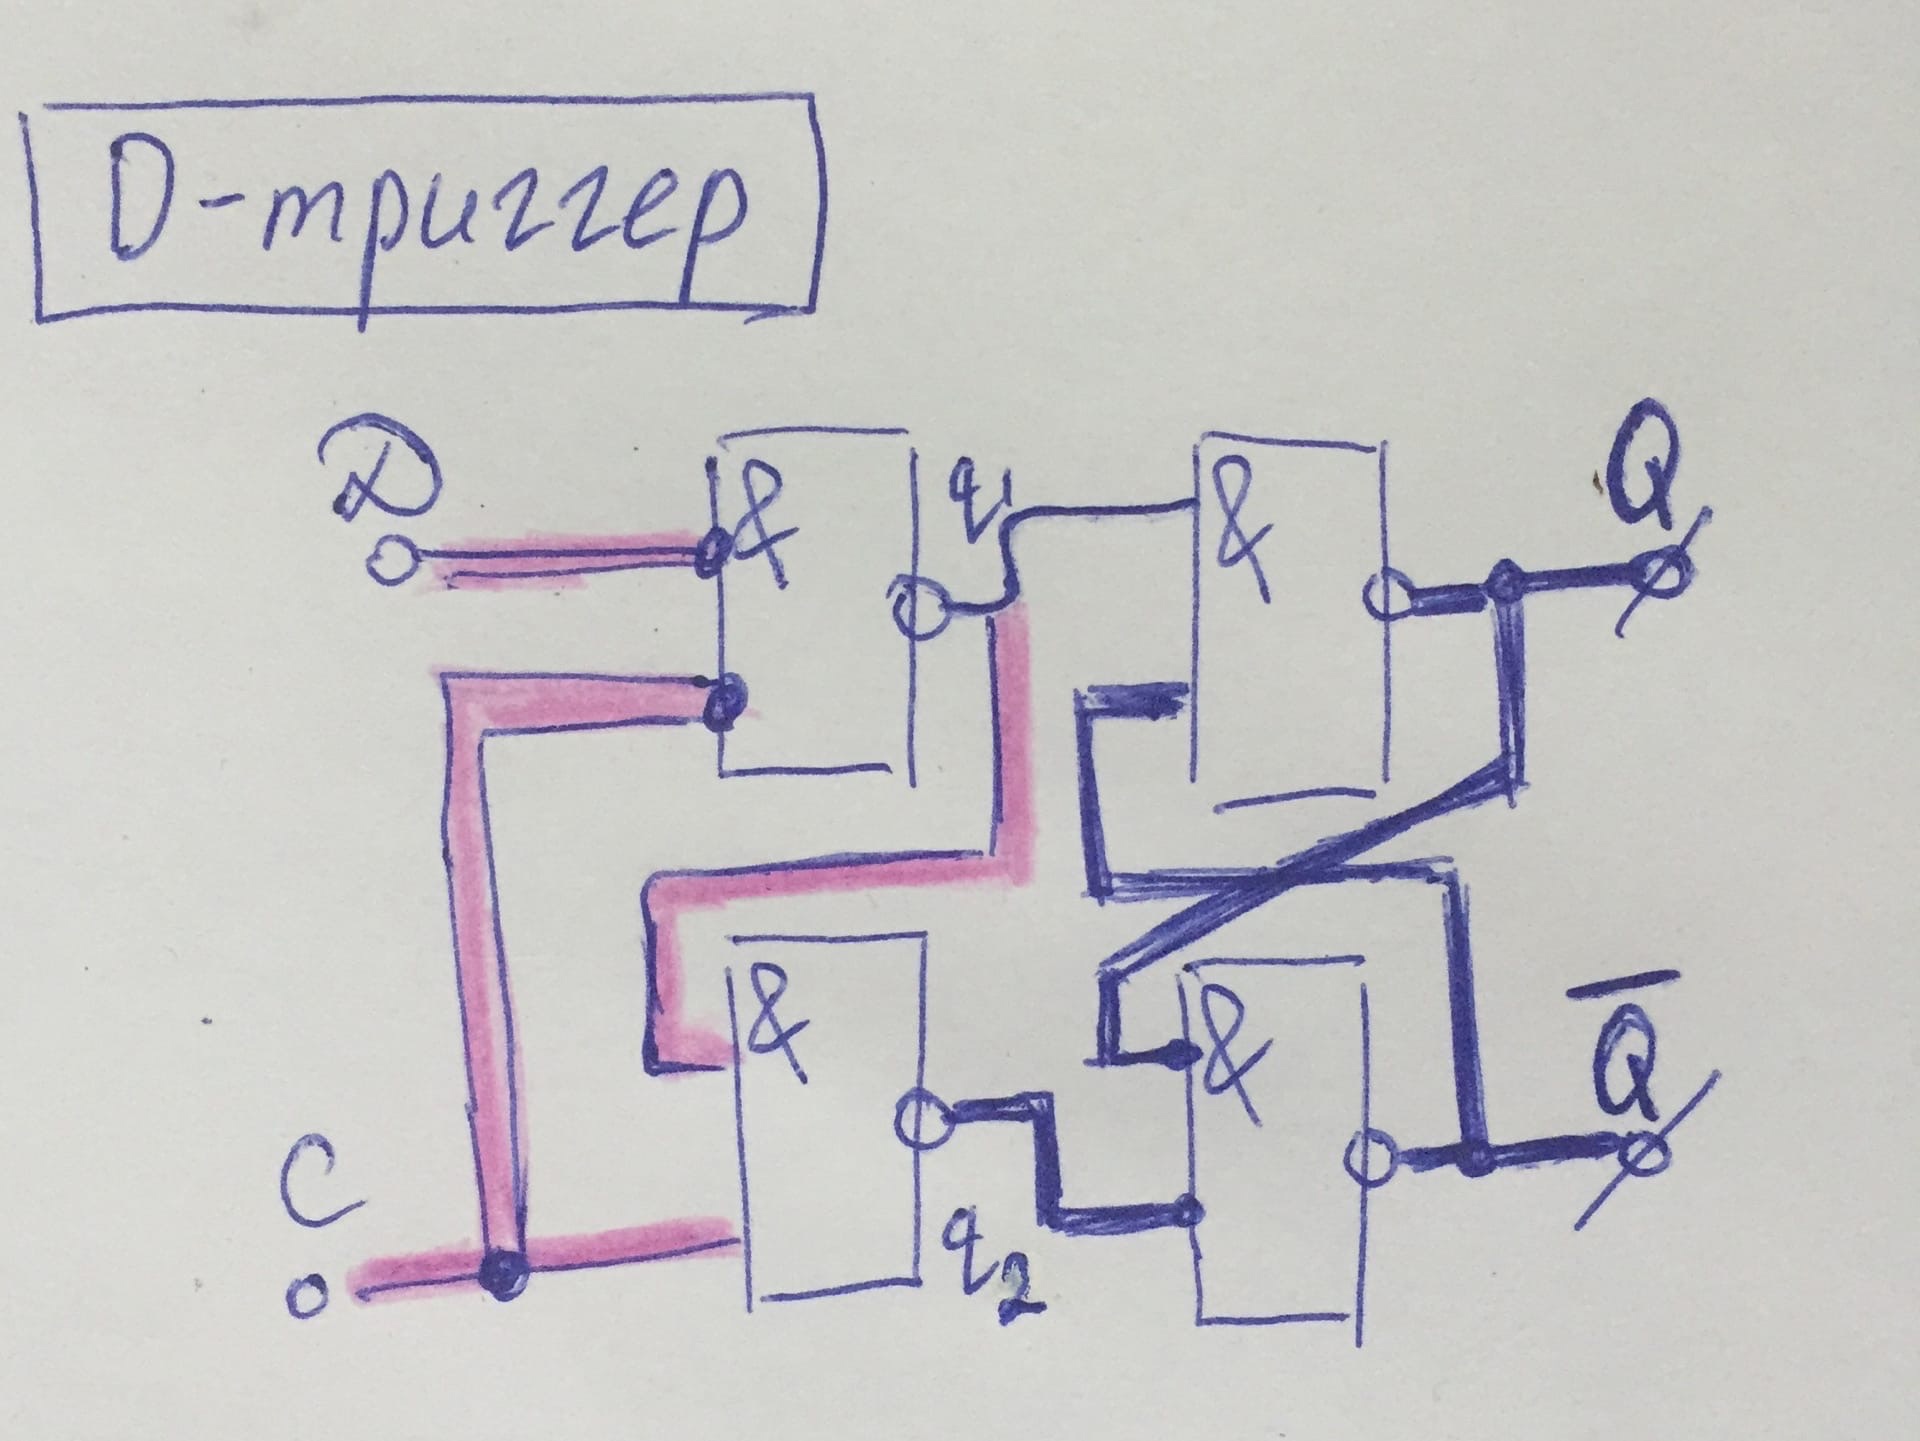 D-триггер
D
&
q1
&
Q
C
&
q2
&
Q̅